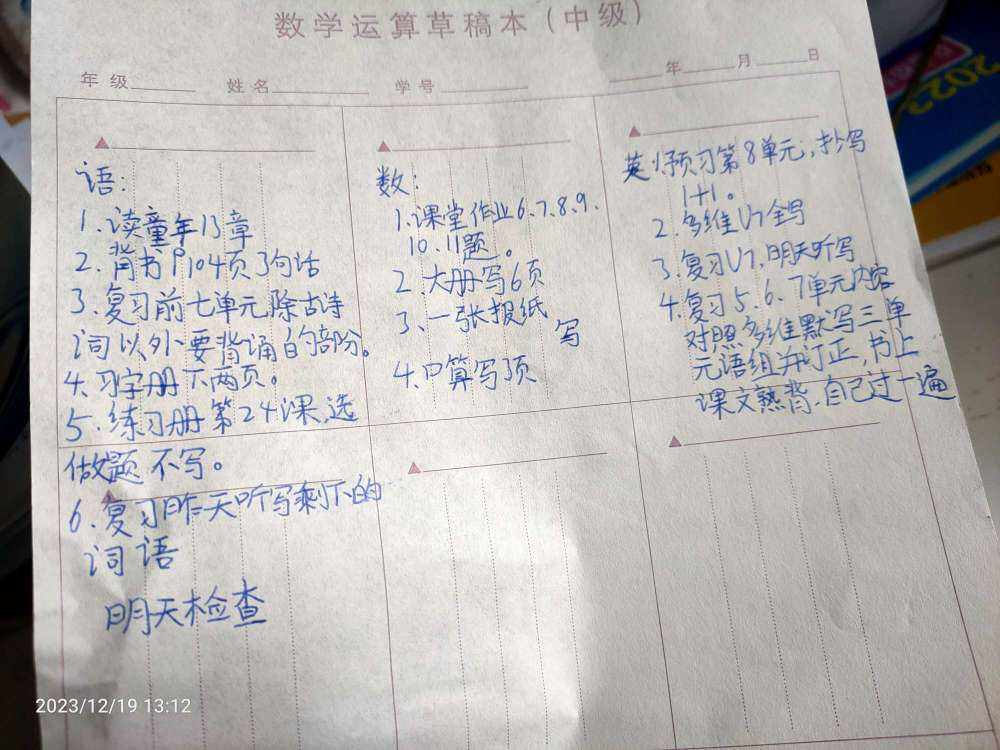 数学运算草稿本（中级）
年级 姓名 学号 年 月 日
语：
1、读童年13章
2、背书P104页3句话
3、复习前七单元除古诗
词以外要背诵的部分。
4、习字册下两页。
5、练习册第24课，选
做题不写。
6、复习昨天听写剩下的
词语
明天检查
数：
1、课堂作业6、7、8、9、
10、11题。
2、大册写6页
3、一张报纸
写
4、口算写页
英：预习第8单元，抄写
1+1。
2、多维U7全写
3、复习U7，明天听写
4、复习5、6、7单元内容
对照多维默写三单
元语组并订正，书上
课文熟背，自己过一遍
2023
2023/12/19 13:12